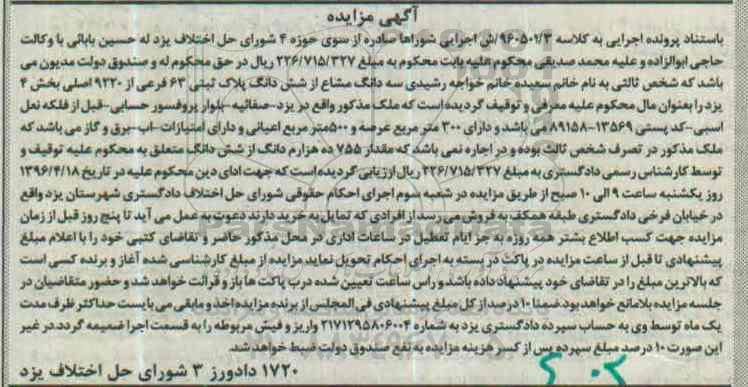 آگهی مزایده
باستناد پرونده اجرایی به کلاسه ۹۶۰۵۰۲/۳/ش اجرایی شوراها صادره از سوی حوزه ۴ شورای حل اختلاف یزد له حسین بابائی با وکالت
حاجی ابوالزاده و علیه محمد صدیقی محکوم علیه بابت محکوم به مبلغ ۲۲۶/۷۱۵/۳۲۷ ریال در حق محکوم له و صندوق دولت مدیون می
باشد که شخص ثالثی به نام خانم سعیده خانم خواجه رشیدی سه دانگ مشاع از شش دانگ پلاک ثبتی ۶۳ فرعی از ۹۲۲۰ اصلی بخش ۴
یزد را بعنوان مال محکوم علیه معرفی و توقیف گردیده است که ملک مذکور واقع در یزد-صفائیه-بلوار پروفسور حسابی-قبل از فلکه نعل
اسبی-کد پستی ۱۳۵۶۹-۸۹۱۵۸ می باشد و دارای ۳۰۰ متر مربع عرصه و ۵۰۰متر مربع اعیانی و دارای امتیازات -آب-برق و گاز می باشد که
ملک مذکور در تصرف شخص ثالث بوده و در اجاره نمی باشد که مقدار ۷۵۵ ده هزارم دانگ از شش دانگ متعلق به محکوم علیه توقیف و
توسط کارشناس رسمی دادگستری به مبلغ ۲۲۶/۷۱۵/۳۲۷ ریال ارزیابی گردیده است که جهت ادای دین محکوم علیه در تاریخ ۱۳۹۶/۴/۱۸
روز یکشنبه ساعت ۹ الی ۱۰ صبح از طریق مزایده در شعبه سوم اجرای احکام حقوقی شورای حل اختلاف دادگستری شهرستان یزد واقع
در خیابان فرخی دادگستری طبقه همکف به فروش می رسد از افرادی که تمایل به خرید دارند دعوت به عمل می آید تا پنج روز قبل از زمان
مزایده جهت کسب اطلاع بیشتر همه روزه به جز ایام تعطیل در ساعات اداری در محل مذکور حاضر و تقاضای کتبی خود را با اعلام مبلغ
پیشنهادی تا قبل از ساعت مزایده در پاکت در بسته به اجرای احکام تحویل نماید مزایده از مبلغ کارشناسی شده آغاز و برنده کسی است
که بالاترین مبلغ را در تقاضای خود پیشنهاد داده باشد و راس ساعت تعیین شده درب پاکت ها باز و قرائت خواهد شد و حضور متقاضیان در
جلسه مزایده بلامانع خواهد بود ضمنا ۱۰ درصد از کل مبلغ پیشنهادی فی المجلس از برنده مزایده اخذ و مابقی می بایست حداکثر ظرف مدت
یک ماه توسط وی به حساب سپرده دادگستری یزد به شماره ۲۱۷۱۲۹۵۸۰۶۰۰۴ واریز و فیش مربوطه را به قسمت اجرا ضمیمه گردد. در غیر
این صورت ۱۰ درصد مبلغ سپرده پس از کسر هزینه مزایده به نفع صندوق دولت ضبط خواهد شد.
۱۷۲۰ دادورز ۳ شورای حل اختلاف یزد